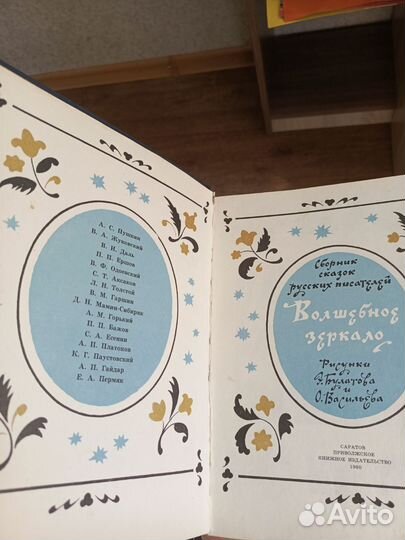 А. С. Пушкин
В. А. Жуковский
В. И. Даль
П. П. Ершов
В. Ф. Одоевский
С. Т. Аксаков
Л. Н. Толстой
В. М. Гаршин
Д. Н. Мамин-Сибиряк
А. М. Горький
П. П. Бажов
С. А. Есенин
А. П. Платонов
К. Г. Паустовский
А. П. Гайдар
Е. А. Пермяк
Сборник
сказок
русских писателей
Волшебное
зеркало
Рисунки
Э. Булатова
и
О. Васильева
САРАТОВ
ПРИВОЛЖСКОЕ
КНИЖНОЕ ИЗДАТЕЛЬСТВО
Avito